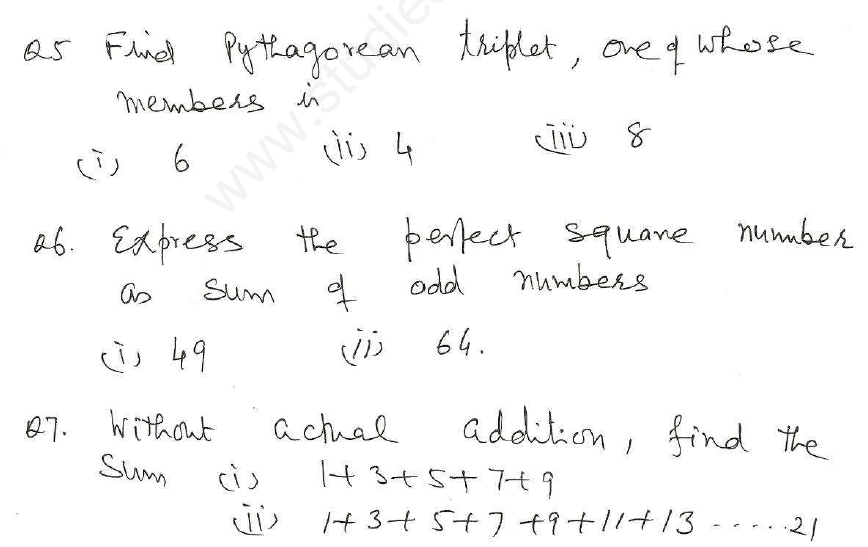 Q5 Find Pythagorean triplet, one of whose
members is
(i) 6 (ii) 4 (iii) 8
Q6. Express the perfect square number
as sum of odd numbers
(i) 49 (ii) 64.
Q7. Without actual addition, find the
Sum (i) 1+3+5+7+9
(ii) 1+3+5+7+9+11+13 ......21
www.studies